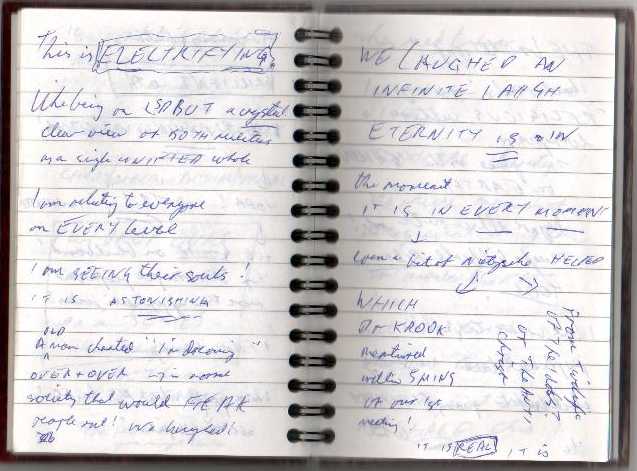 This is ELECTRIFYING.
Like being on LSD BUT a crystal
clear view of BOTH realities
as a single UNIFIED whole
I am relating to everyone
on EVERY level
I am SEEING their souls!
IT IS ASTONISHING
OLD
A man chanted "I'm dreaming"
OVER + OVER in normal
society that would FREAK
people out! We laughed!
WE LAUGHED AN
INFINITE LAUGH
ETERNITY IS IN
the moment
IT IS IN EVERY MOMENT
even a bit of Nietzsche HELPED
WHICH
Dr KROOK
mentioned
within 5 MINS
of our 1st
meeting!
From Twilight
of the Idols?
or The Anti,
christ
IT IS REAL, IT IS